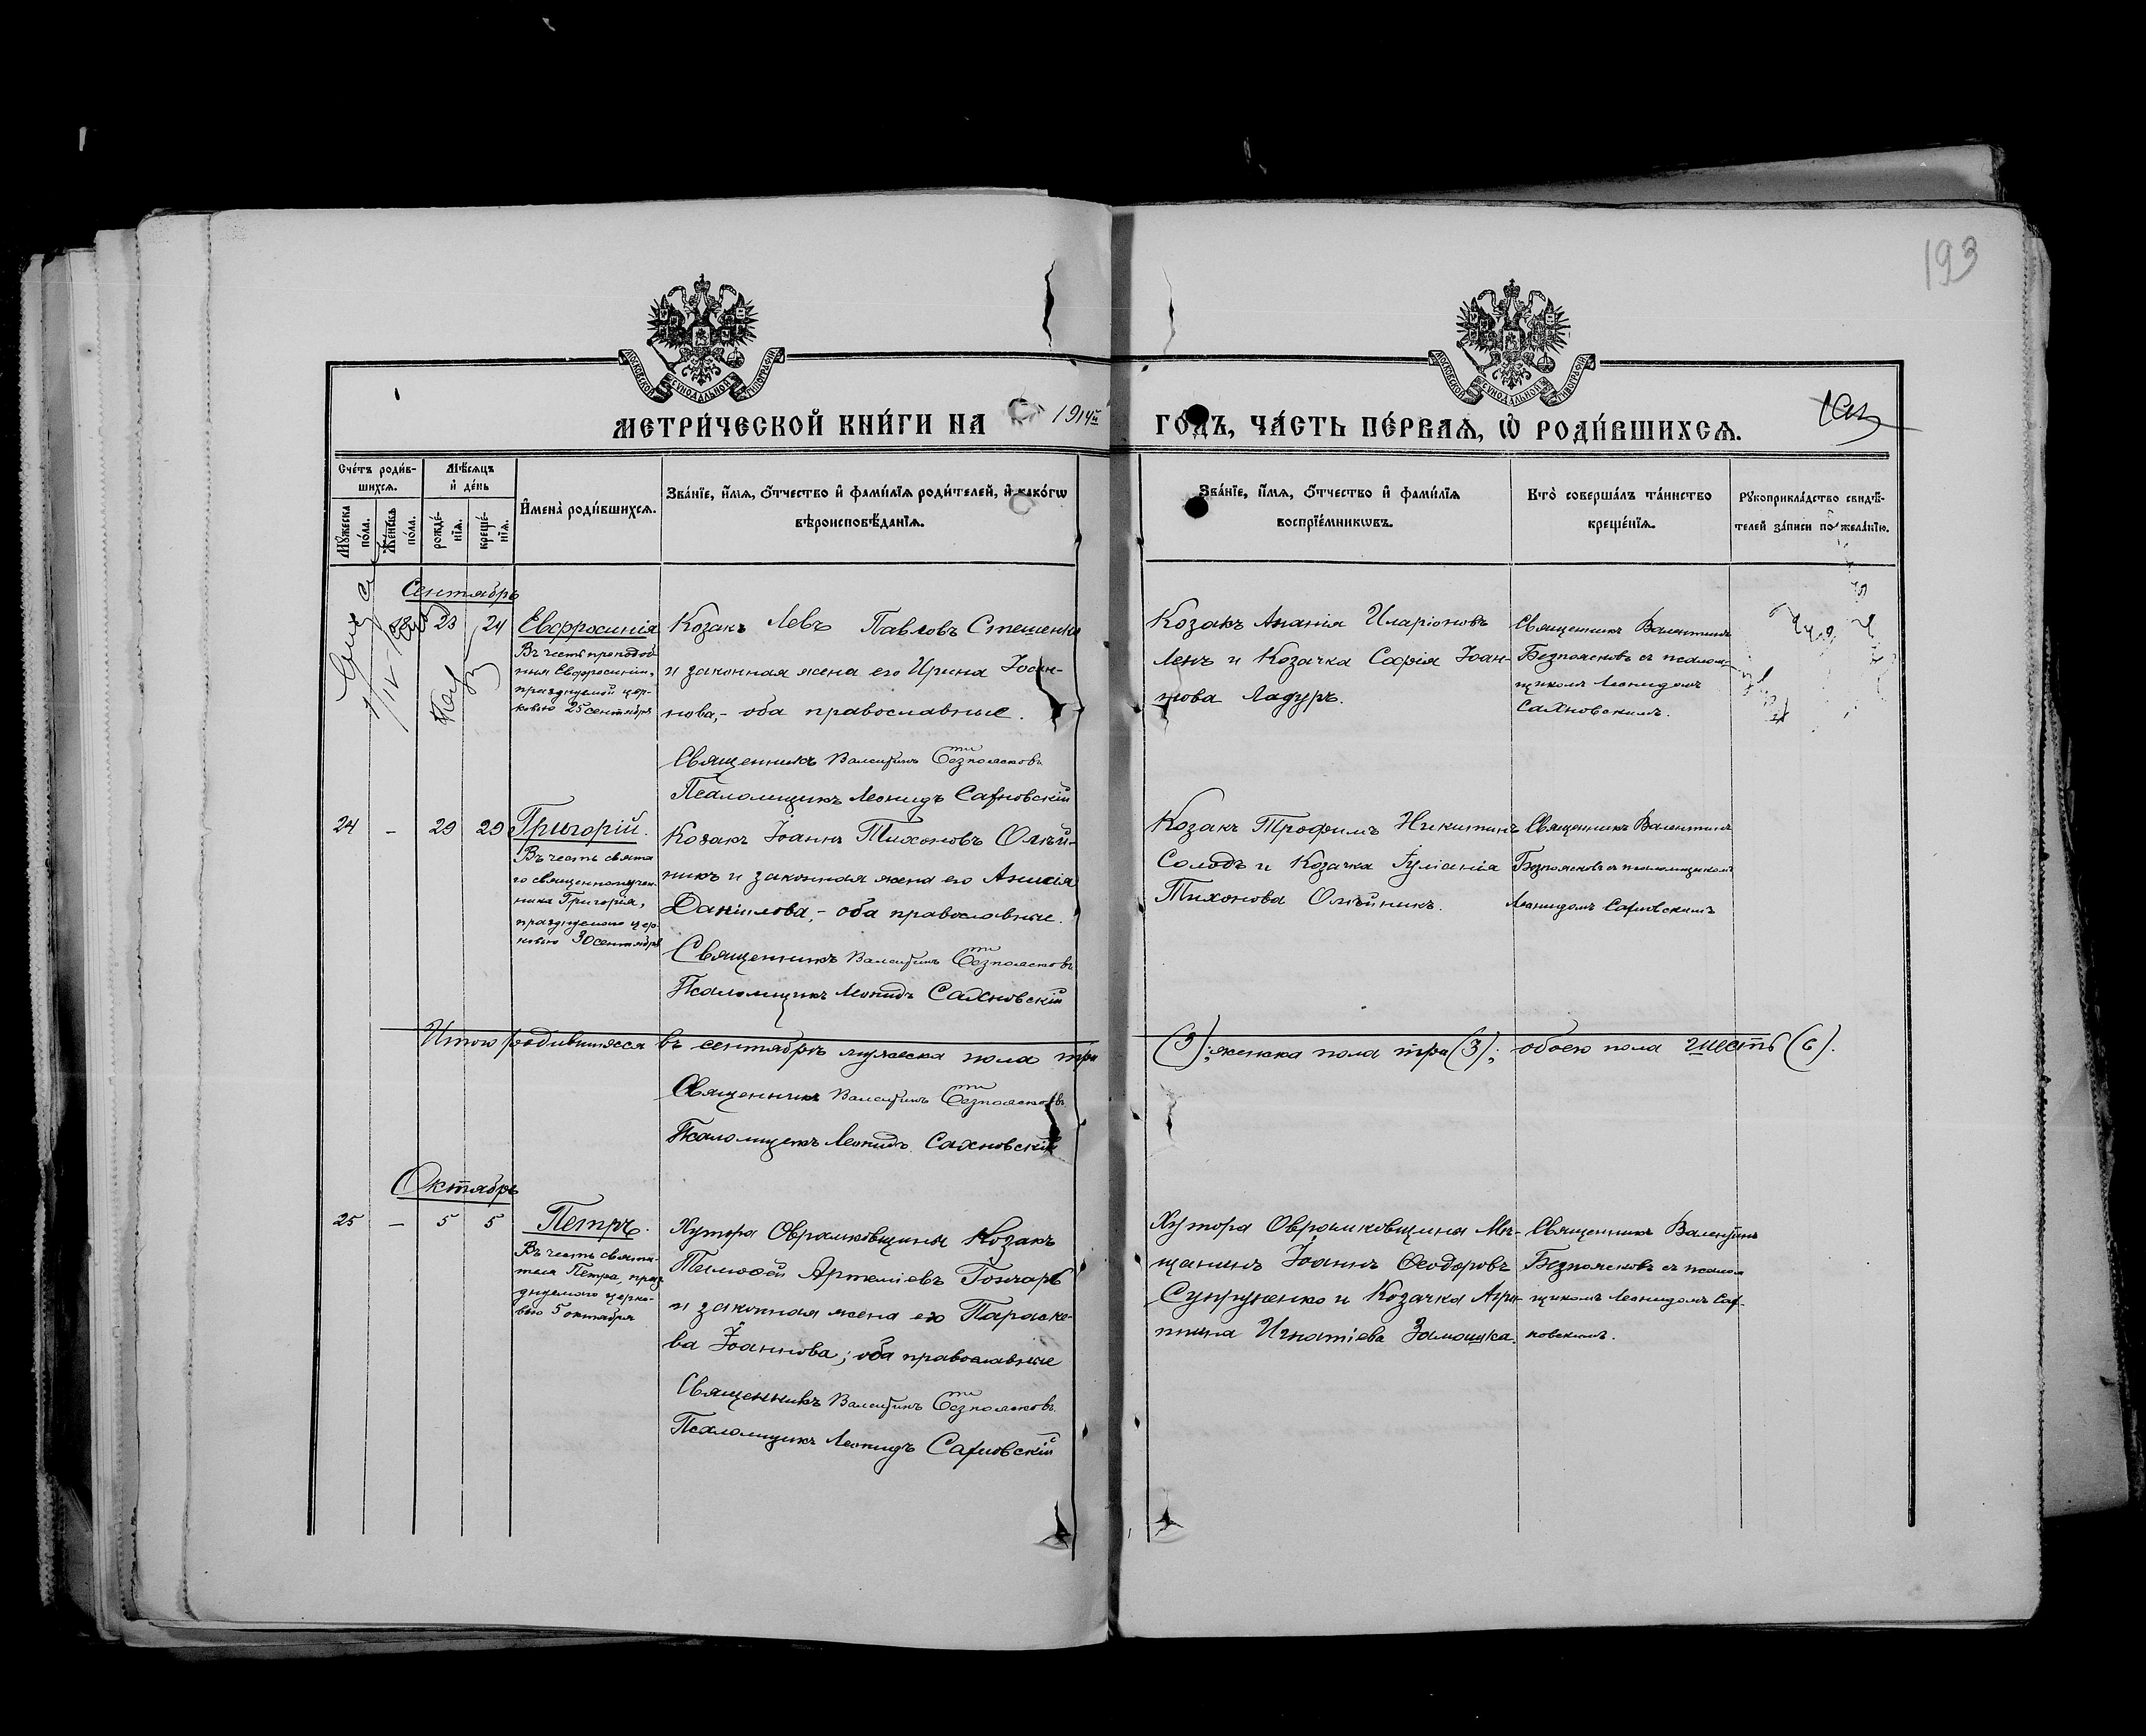 193
МОСКОВСКОЙ СѴНОДАЛЬНОЙ ТИПОГРАФІИ
МОСКОВСКОЙ СѴНОДАЛЬНОЙ ТИПОГРАФІИ
МЕТРИ́ЧЕСКОЙ КНИ́ГИ НА 1914й ГО́ДЪ, ЧА́СТЬ ПЕ́РВАЯ, Ѡ҆ РОДИ́ВШИХСЯ.
Сче́тъ роди́в-
шихся.
Мѣ́сяцъ
и҆ де́нь
Мꙋ́жеска
по́ла.
Же́нска
по́ла.
рожде́-
нїя.
креще́-
нїя.
И҆мена̀ роди́вшихся.
Зва́нїе, и҆́мя, ѻ҆́тчество и҆ фами́лїя роди́телей, и҆ како́гѡ
вѣроисповѣ́данїя.
Зва́нїе, и҆́мя, ѻ҆́тчество и҆ фами́лїя
воспрїе́мникѡвъ.
Кто̀ соверша́лъ та́инство
креще́нїя.
Рꙋкоприкла́дство свидѣ́-
телей за́писи по жела́нїю.
Сентябрь
23 24
Евфросинія
Въ честь преподоб-
ныя Евфросиніи,
празднуемой цер-
ковью 25 сентября
Козакъ Левъ Павловъ Стешенко
и законная жена его Ирина Іоан-
нова,- оба православные.
Священникъ Валентинъ Безпоясковъ
Псаломщикъ Леонидъ Сахновскій
Козакъ Ананія Иларіоновъ
Ленъ и Козачка Софія Іоан-
нова Ладуръ.
Священникъ Валентинъ
Безпоясковъ съ псалом-
щикомъ Леонидомъ
Сахновскимъ.
24 - 29 29
Григорій.
Въ честь свята
го священномучен-
ника Григорія,
празднуемаго цер-
ковью 30 сентября
Козакъ Іоаннъ Тихоновъ Олѣй-
никъ и законная жена его Анисія
Даніилова,- оба православные.
Священникъ Валентинъ Безпоясковъ
Псаломщикъ Леонидъ Сахновскій
Козакъ Трофимъ Никитинъ
Солодъ и Козачка Іуліанія
Тихонова Олѣйникъ.
Священникъ Валентинъ
Безпоясковъ съ псаломщикомъ
Леонидомъ Сахновскимъ
Итого родившихся въ сентябрѣ мужеска пола три (3); женска пола три (3); обоего пола шесть (6).
Священникъ Валентинъ Безпоясковъ
Псаломщикъ Леонидъ Сахновскій
Октябрь
25 - 5 5
Петръ.
Въ честь святи-
теля Петра, праз
днуемаго церко-
вью 5 октября
Хутора Оврамковщины Козакъ
Тимофей Артеміевъ Гончаръ
и законная жена его Параске-
ва Іоаннова; оба православные
Священникъ Валентинъ Безпоясковъ
Псаломщикъ Леонидъ Сахновскій
Хутора Оврамковщина Мѣ-
щанинъ Іоаннъ Ѳеодоровъ
Супруненко и Козачка Агрип-
пина Игнатіева
Священникъ Валентинъ
Безпоясковъ съ псалом
щикомъ Леонидомъ Сах-
новскимъ.